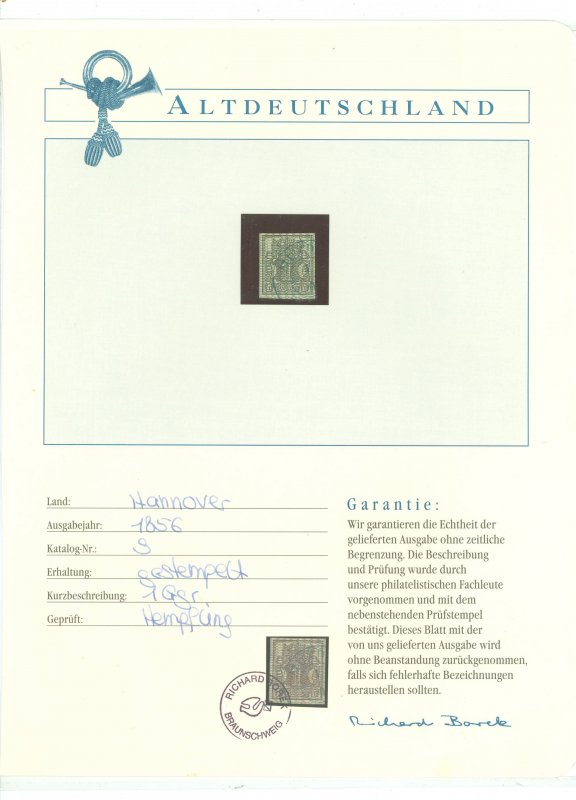 ALTDEUTSCHLAND
Land: Hannover
Ausgabejahr: 1856
Katalog-Nr.: 9
Erhaltung: gestempelt
Kurzbeschreibung: 1 Ggr.
Geprüft: Hempfling
Garantie:
Wir garantieren die Echtheit der
gelieferten Ausgabe ohne zeitliche
Begrenzung. Die Beschreibung
und Prüfung wurde durch
unsere philatelistischen Fachleute
vorgenommen und mit dem
nebenstehenden Prüfstempel
bestätigt. Dieses Blatt mit der
von uns gelieferten Ausgabe wird
ohne Beanstandung zurückgenommen,
falls sich fehlerhafte Bezeichnungen
herausstellen sollten.
Richard Borek
RICHARD BOREK
BRAUNSCHWEIG